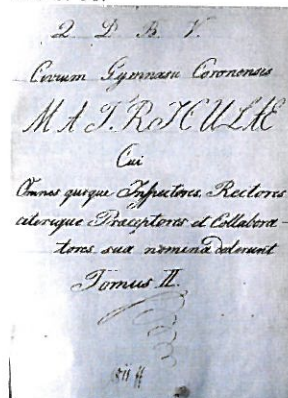 Q. D. B. V.
Civium Gymnasii Coronensis
MATRICULAE
Cui
Omnes quique Inspectores, Rectores
ceterique Praeceptores et Collabora-
tores sua nomina dederunt
Tomus II.